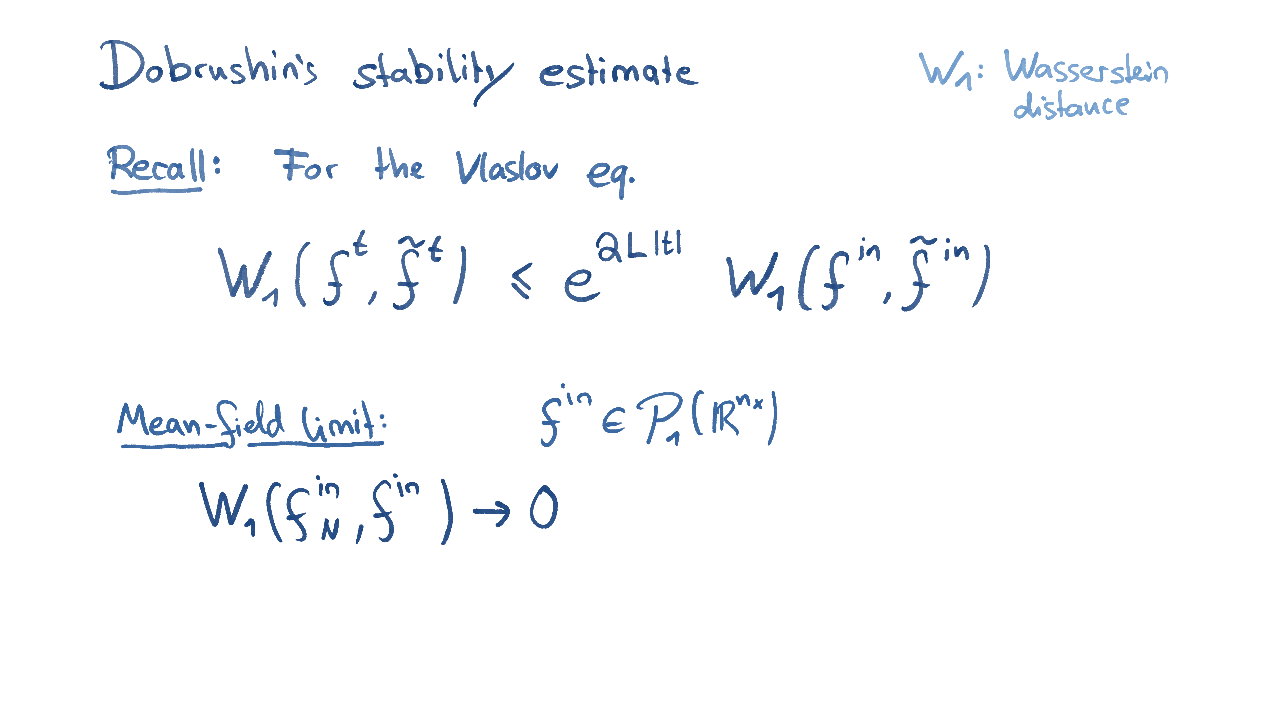 Dobrushin's stability estimate
W₁: Wasserstein
distance
Recall: For the Vlaslov eq.
W₁(fᵗ, f̃ᵗ) ⩽ e^{2L|t|} W₁(f^{in}, f̃^{in})
Mean-field limit: f^{in} ∈ 𝒫₁(ℝ^{n_x})
W₁(f_N^{in}, f^{in}) → 0